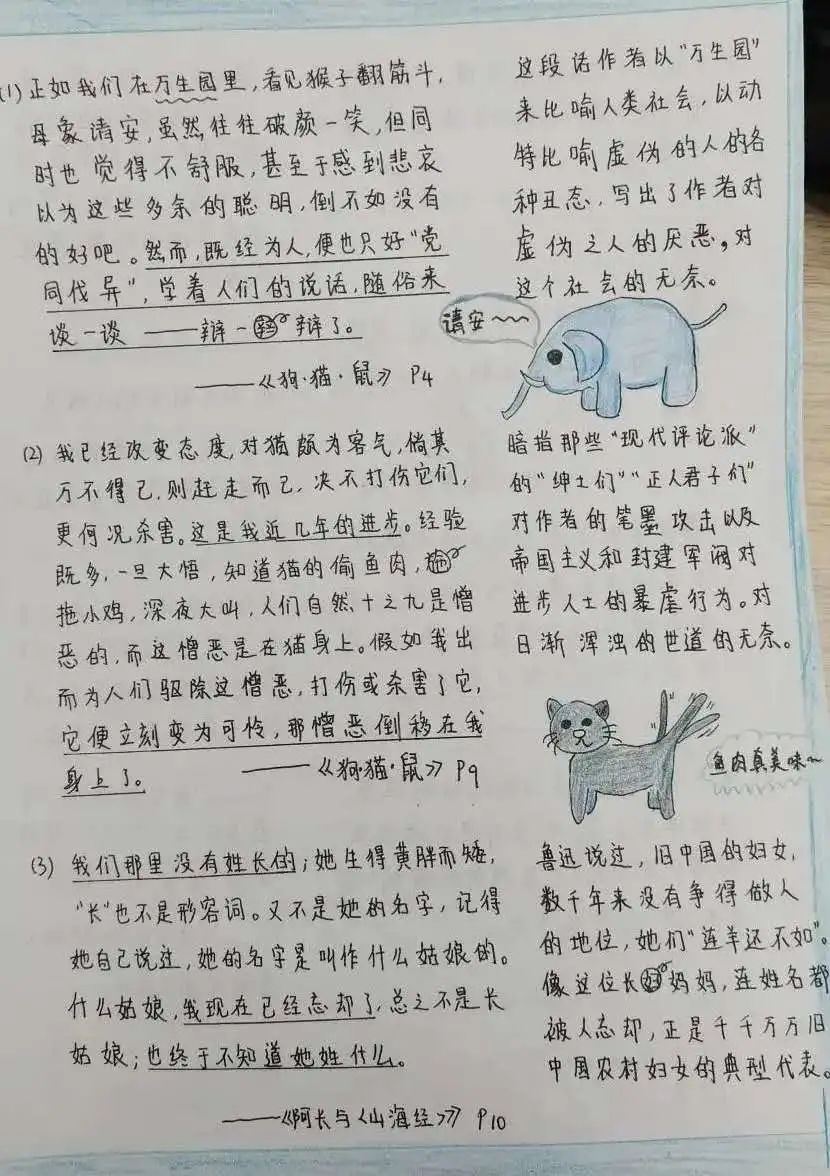 (1) 正如我们在万生园里,看见猴子翻筋斗,
母象请安,虽然往往破颜一笑,但同
时也觉得不舒服,甚至于感到悲哀
以为这些多余的聪明,倒不如没有
的好吧。然而,既经为人,便也只好“党
同伐异”,学着人们的说话,随俗来
谈一谈——辩一辩了。
——《狗·猫·鼠》 P4
这段话作者以“万生园”
来比喻人类社会,以动
特比喻虚伪的人的各
种丑态,写出了作者对
虚伪之人的厌恶,对
这个社会的无奈。
请安~~
(2) 我已经改变态度,对猫颇为客气,倘其
万不得已,则赶走而已,决不打伤它们,
更何况杀害。这是我近几年的进步。经验
既多,一旦大悟,知道猫的偷鱼肉,
拖小鸡,深夜大叫,人们自然十之九是憎
恶的,而这憎恶是在猫身上。假如我出
而为人们驱除这憎恶,打伤或杀害了它,
它便立刻变为可怜,那憎恶倒移在我
身上了。
——《狗·猫·鼠》 P9
暗指那些“现代评论派”
的“绅士们”“正人君子们”
对作者的笔墨攻击以及
帝国主义和封建军阀对
进步人士的暴虐行为。对
日渐浑浊的世道的无奈。
鱼肉真美味~
(3) 我们那里没有姓长的;她生得黄胖而矮,
“长”也不是形容词。又不是她的名字,记得
她自己说过,她的名字是叫作什么姑娘的。
什么姑娘,我现在已经忘却了,总之不是长
姑娘;也终于不知道她姓什么。
——《阿长与《山海经》》 P10
鲁迅说过,旧中国的妇女,
数千年来没有争得做人
的地位,她们“连羊还不如”。
像这位长妈妈,连姓名都
被人忘却,正是千千万万旧
中国农村妇女的典型代表。